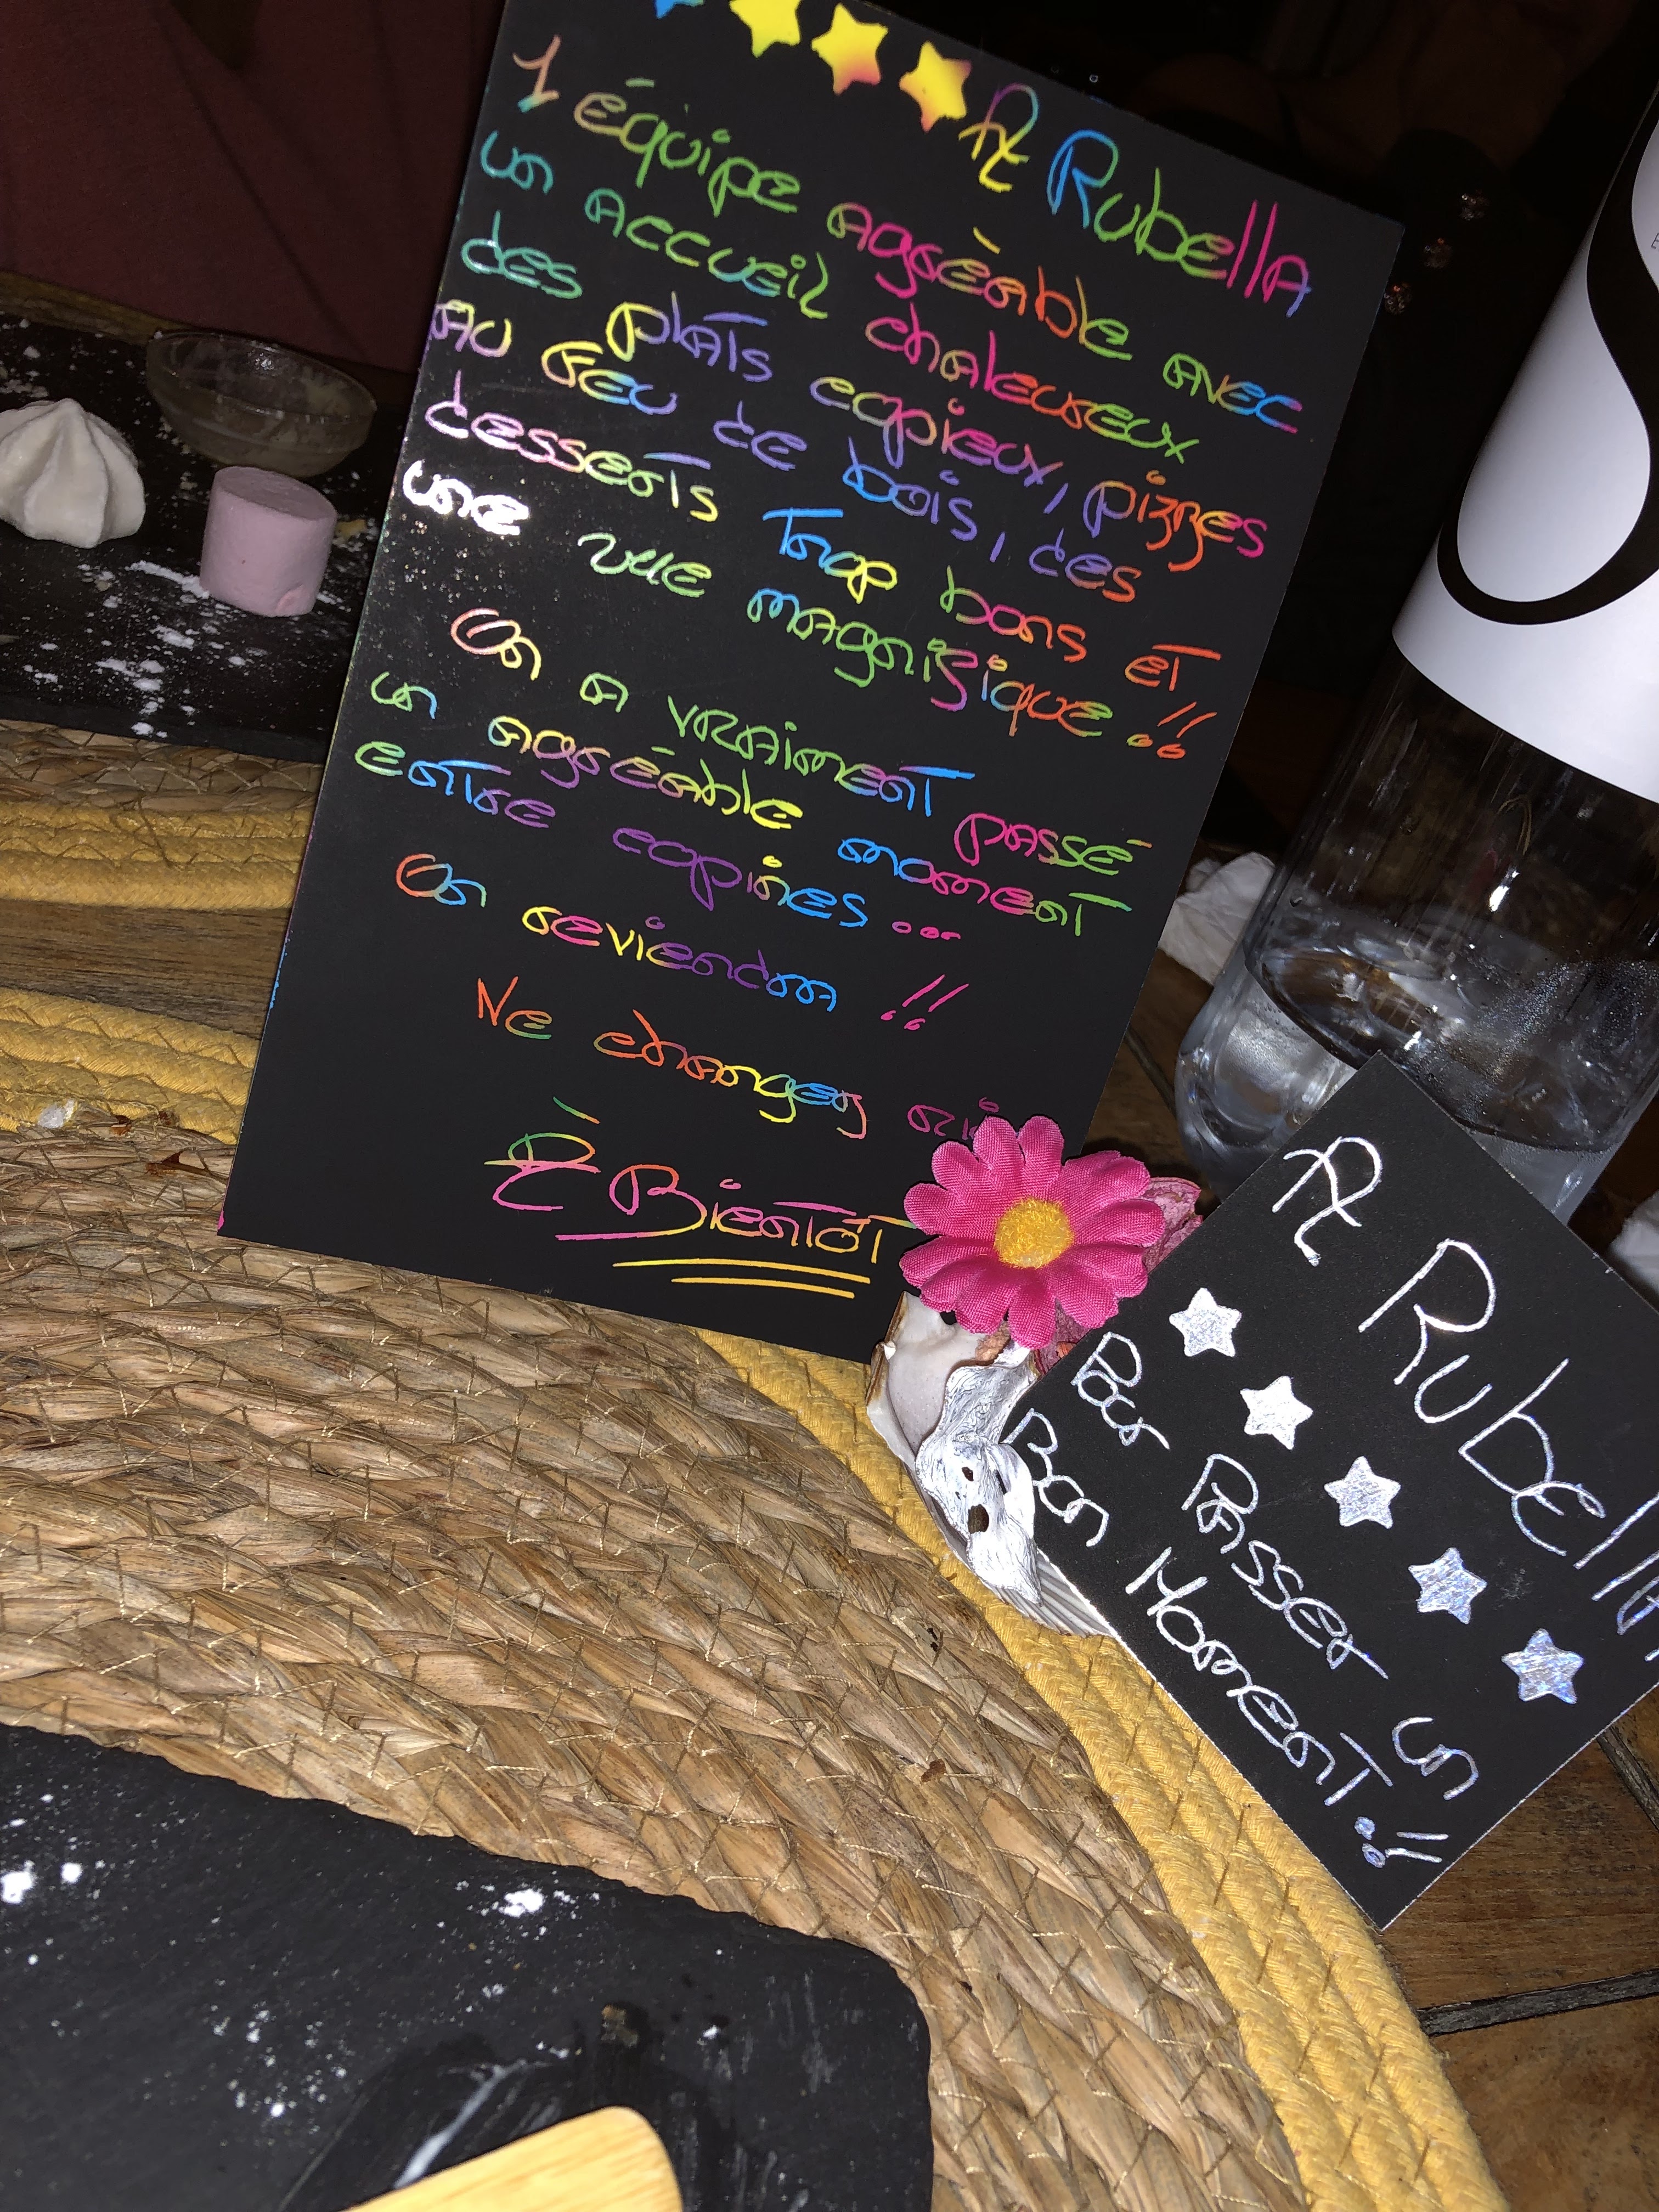 A Rubella
1 équipe agréable avec
un accueil chaleureux
des plats copieux, pizzes
au feu de bois, des
desserts trop bons et
une vue magnifique !!
On a vraiment passé
un agréable moment
entre copines ...
On reviendra !!
Ne changez rie
À Bientôt
A Rubella
Pour Passer un
Bon Moment !!